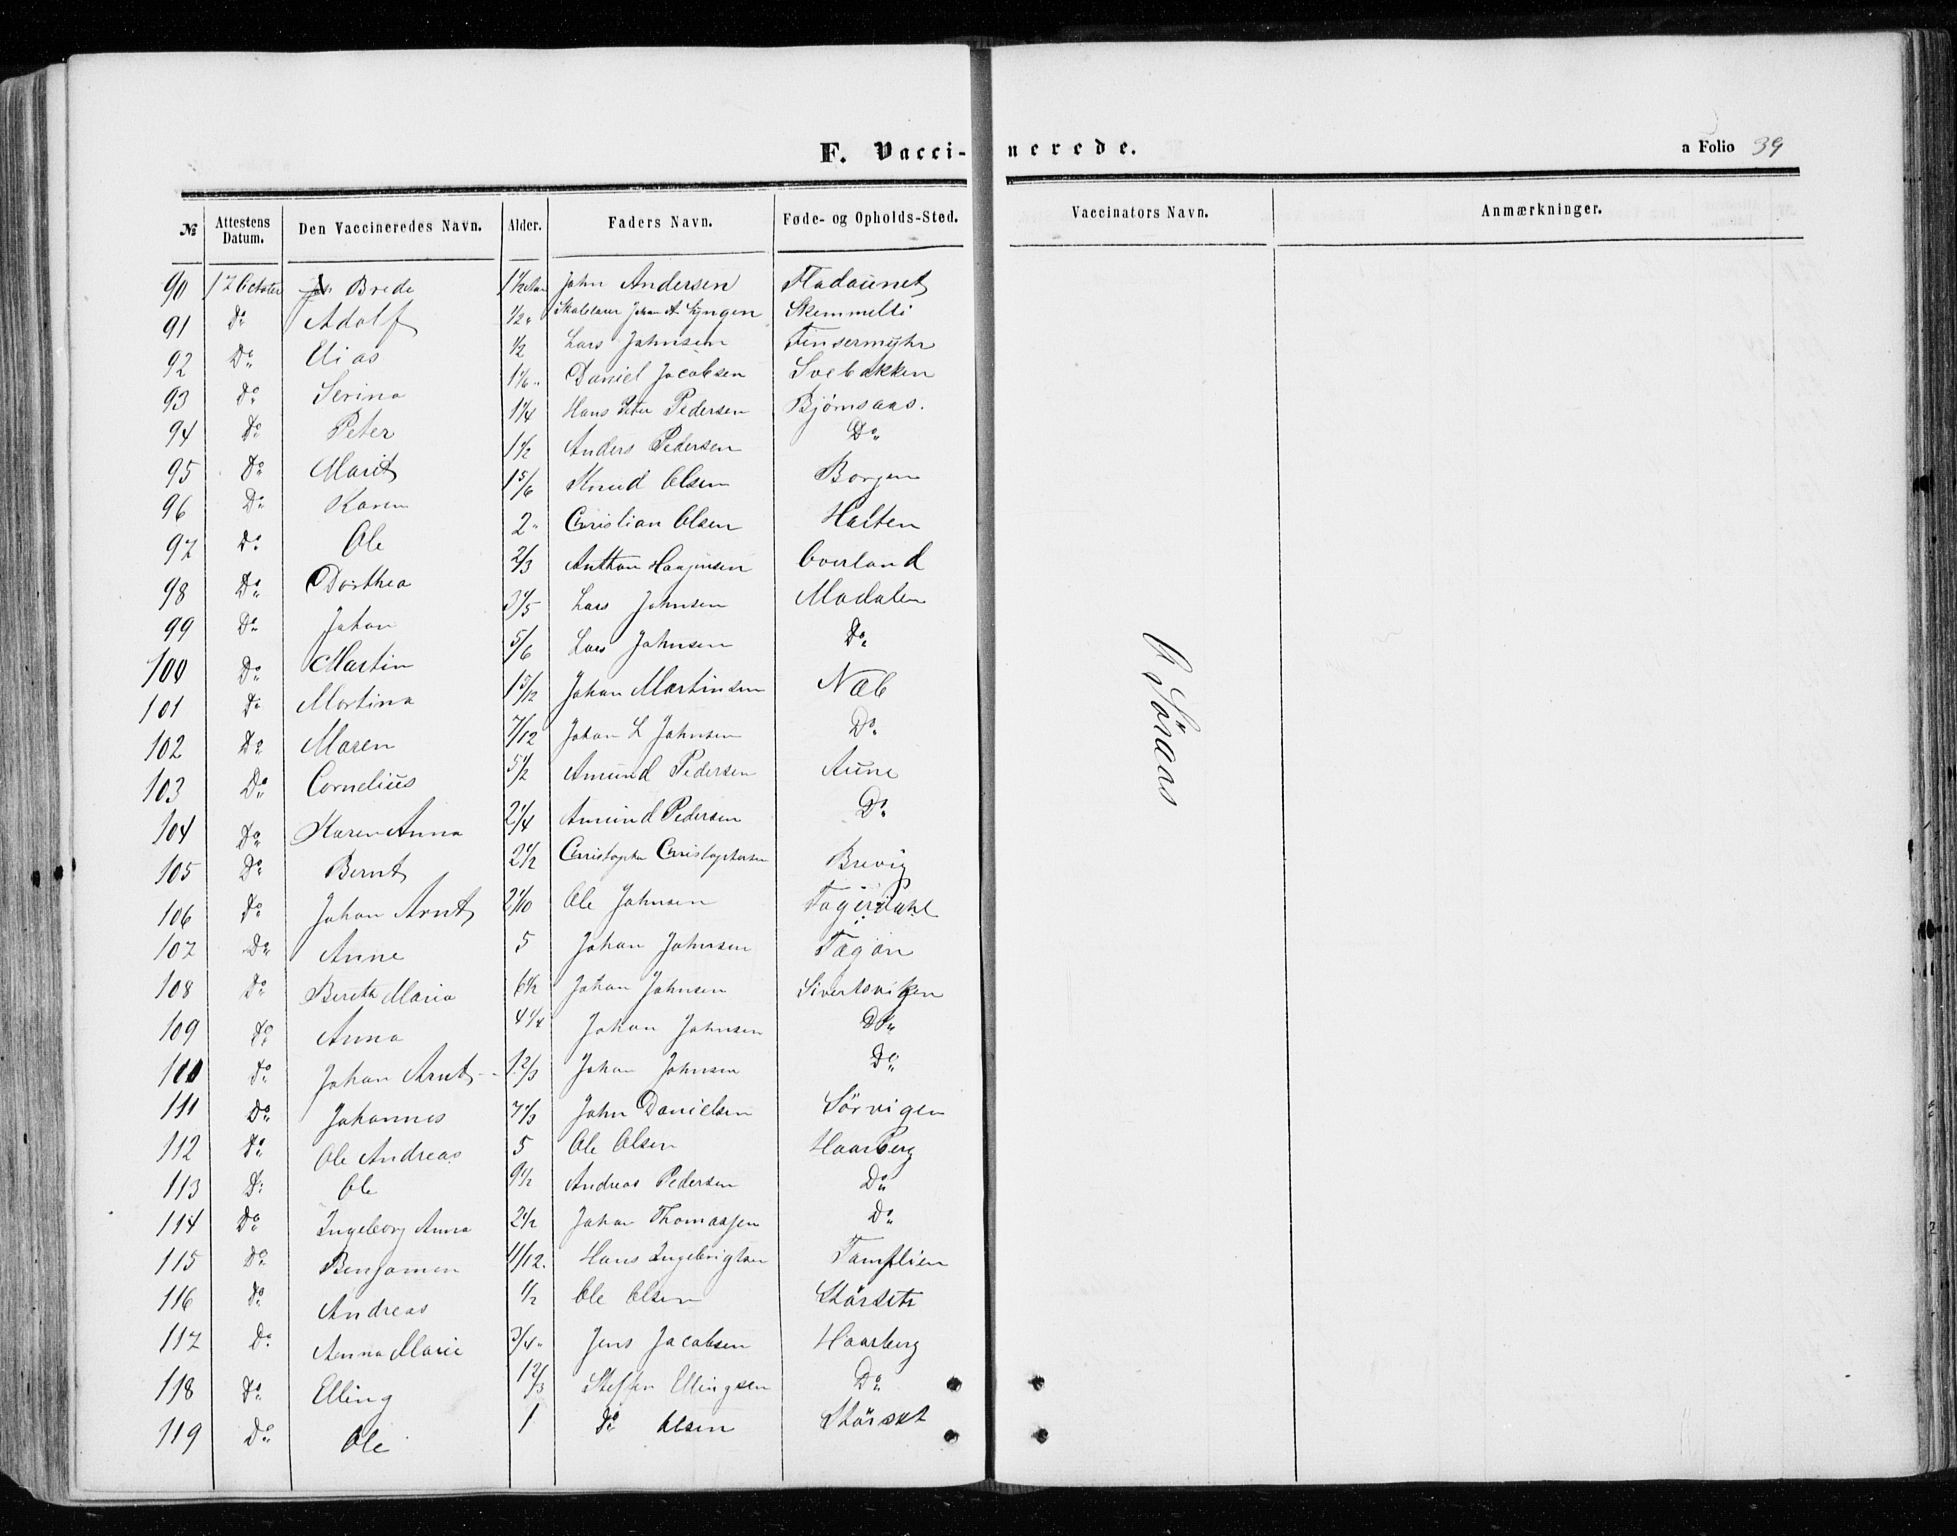 F. Vaccinerede.
a Folio 39
№ | Attestens Datum. | Den Vaccineredes Navn. | Alder. | Faders Navn. | Føde- og Opholds-Sted. | Vaccinators Navn. | Anmærkninger.
90 | 17 October | Brede | 1 1/2 Aar | John Andersen | Fladaunet
91 | Do | Adolf | 1/2 " | Skolelærer Johan A Lyngen | Skemmelli
92 | Do | Elias | 1/2 | Lars Johnsen | Finsermyhr
93 | Do | Serina | 1 1/6 " | Daniel Jacobsen | Svebakken
94 | Do | Peter | 1 1/4 | Hans Peter Pedersen | Bjørnsaas.
95 | Do | Marit | 1 1/2 | Anders Pedersen | Do
96 | Do | Karen | 1 5/6 | Knud Olsen | Borgen
97 | Do | Ole | 2 " | Christian Olsen | Halten
98 | Do | Dorthea | 2/3 | Anthon Haagensen | Overland
99 | Do | Johan | 3 1/5 | Lars Johnsen | Modalen
100 | Do | Martin | 5/6 | Lars Johnsen | Do
101 | Do | Martina | 1 5/12 | Johan Martinsen | Næb
102 | Do | Maren | 7/12 | Johan L Johnsen | Do
103 | Do | Cornelius | 5 1/2 | Amund Pedersen | Aune
104 | Do | Karen Anna | 2 1/4 | Amund Pedersen | Do
105 | Do | Bernt | 2 1/2 | Christopher Christophersen | Brevig
106 | Do | Johan Arnt | 2 1/10 | Ole Johnsen | Fagerdahl
107 | Do | Anne | 5 | Johan Johnsen | Tagøn
108 | Do | Bereth Maria | 6 1/2 | Johan Johnsen | Sivertsvigen
109 | Do | Anna | 4 1/4 | Johan Johnsen | Do
110 | Do | Johan Arnt | 1 2/3 | Johan Johnsen | Do
111 | Do | Johannes | 7 1/3 | John Danielsen | Sørvigen
112 | Do | Ole Andreas | 5 | Ole Olsen | Haarberg
113 | Do | Ole | 9 1/2 | Andreas Pedersen | Do
114 | Do | Ingeborg Anna | 2 1/2 | Johan Thomassen | Do
115 | Do | Benjamen | 11/12. | Hans Ingebrigtsen | Tamflien
116 | Do | Andreas | 1/2 | Ole Olsen | Størseth
117 | Do | Anna Marie | 3/4 " | Jens Jacobsen | Haarberg
118 | Do | Elling | 1 2/3 | Steffen Ellingsen | Do
119 | Do | Ole | 1 | Do Olsen | Størset
Søraas